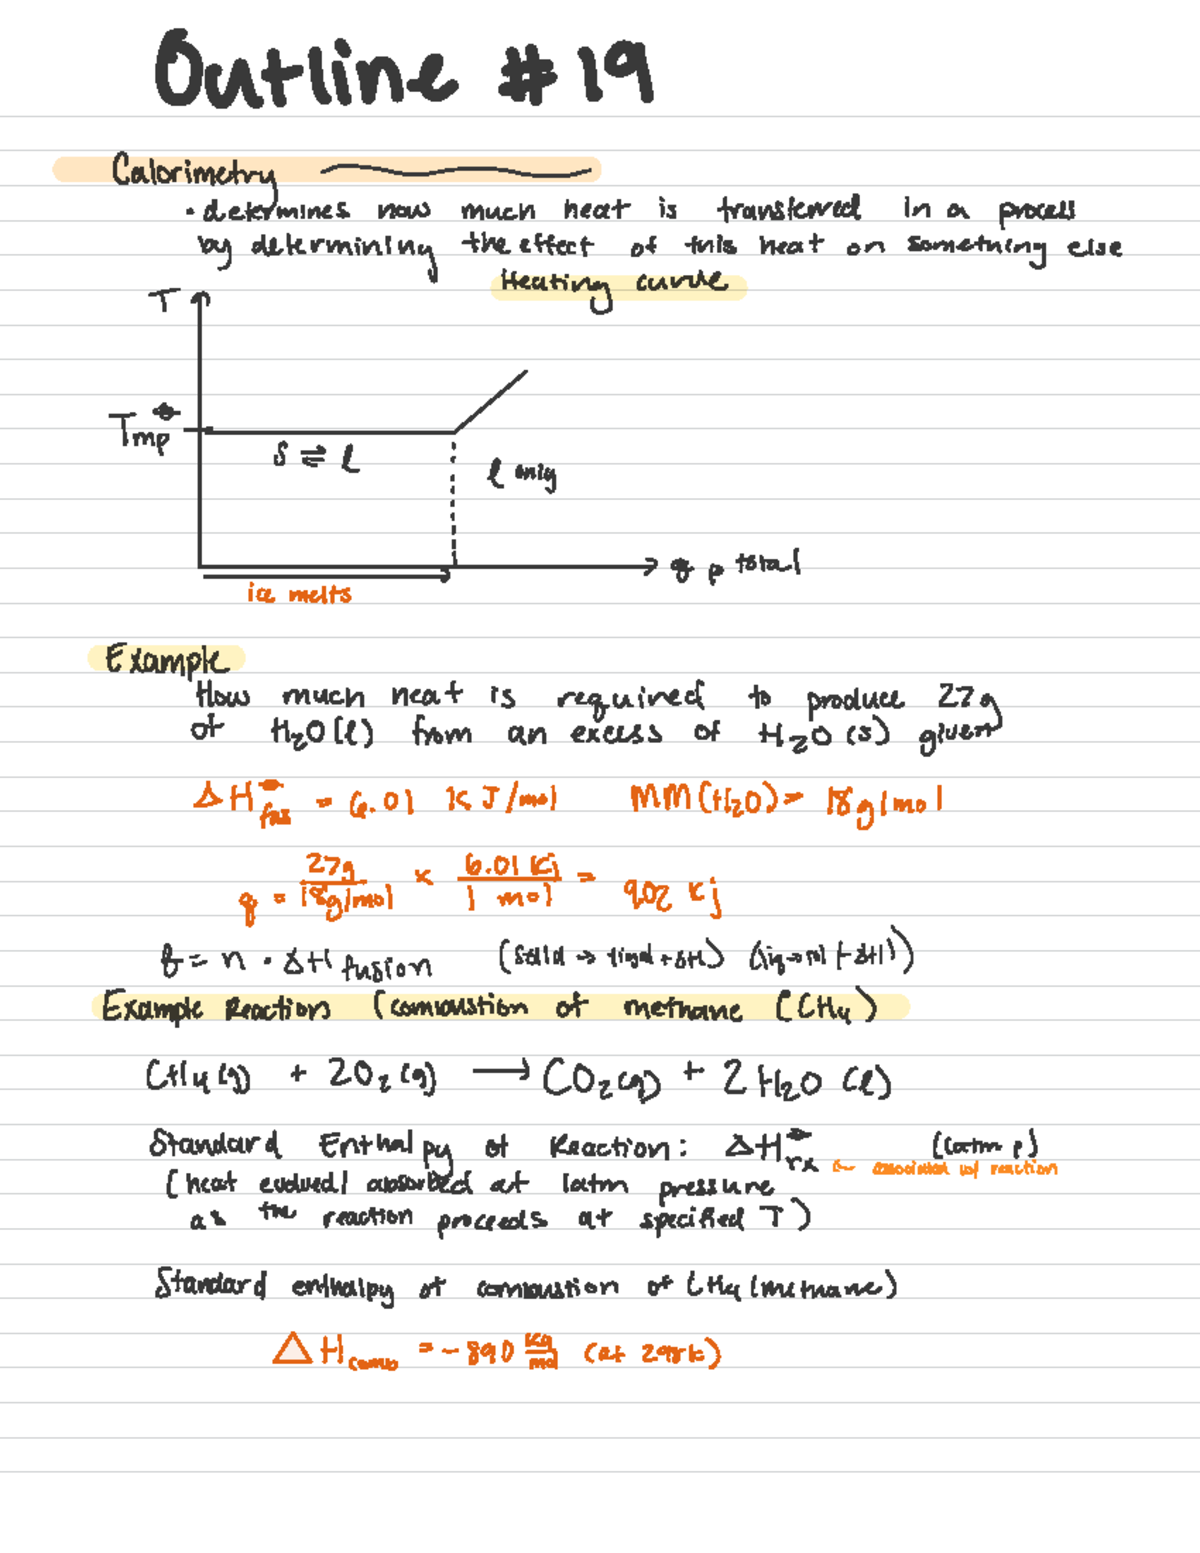 Outline #19
Calorimetry
• determines how much heat is transferred in a process
by determining the effect of this heat on something else
Heating curve
T
Tmp⦵
S ⇌ l
l only
q p total
ice melts
Example
How much heat is required to produce 27g
of H₂O(l) from an excess of H₂O(s) given
ΔH⦵fus = 6.01 KJ/mol MM(H₂O) = 18g/mol
q = 27g/18g/mol × 6.01 Kj/1 mol = 9.02 Kj
q = n · ΔH fusion (solid → liquid + ΔH) (liq → sol (-ΔH))
Example Reactions (combustion of methane (CH₄)
CH₄(g) + 2O₂(g) → CO₂(g) + 2H₂O (l)
Standard Enthalpy of Reaction: ΔH⦵rx (1atm p)
← associated w/ reaction
(heat evolved/absorbed at 1atm pressure
as the reaction proceeds at specified T)
Standard enthalpy of combustion of CH₄ (methane)
ΔHcomb = -890 Kg/mol (at 298k)